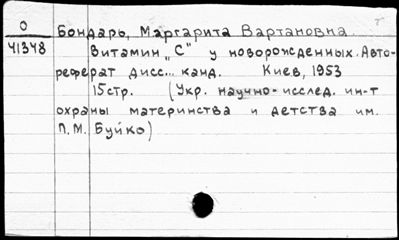 О Бондарь, Маргарита Вартановна.
41348 Витамин „С" у новорожденных. Авто-
реферат дисс... канд. Киев, 1953
15стр. (Укр. научно-исслед. ин-т
охраны материнства и детства им.
П.М. Буйко)